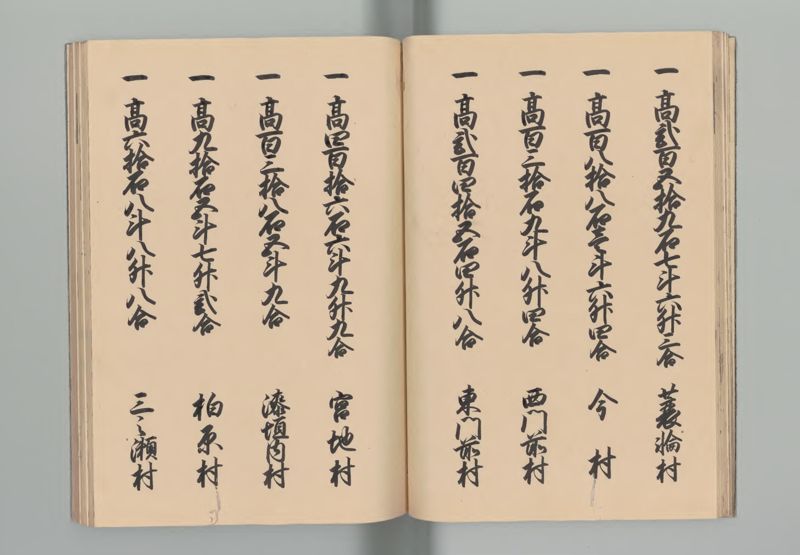 一 高弐百五拾九石七斗六升二合 蓑輪村
一 高百八拾八石三斗六升四合 今村
一 高百二拾石九斗八升四合 西門前村
一 高弐百四拾五石四升八合 東門前村
一 高四百拾六石六斗九升九合 宮地村
一 高百二拾八石五斗九合 漆垣内村
一 高九拾石五斗七升弐合 柏原村
一 高六拾石八斗八升八合 三之瀬村